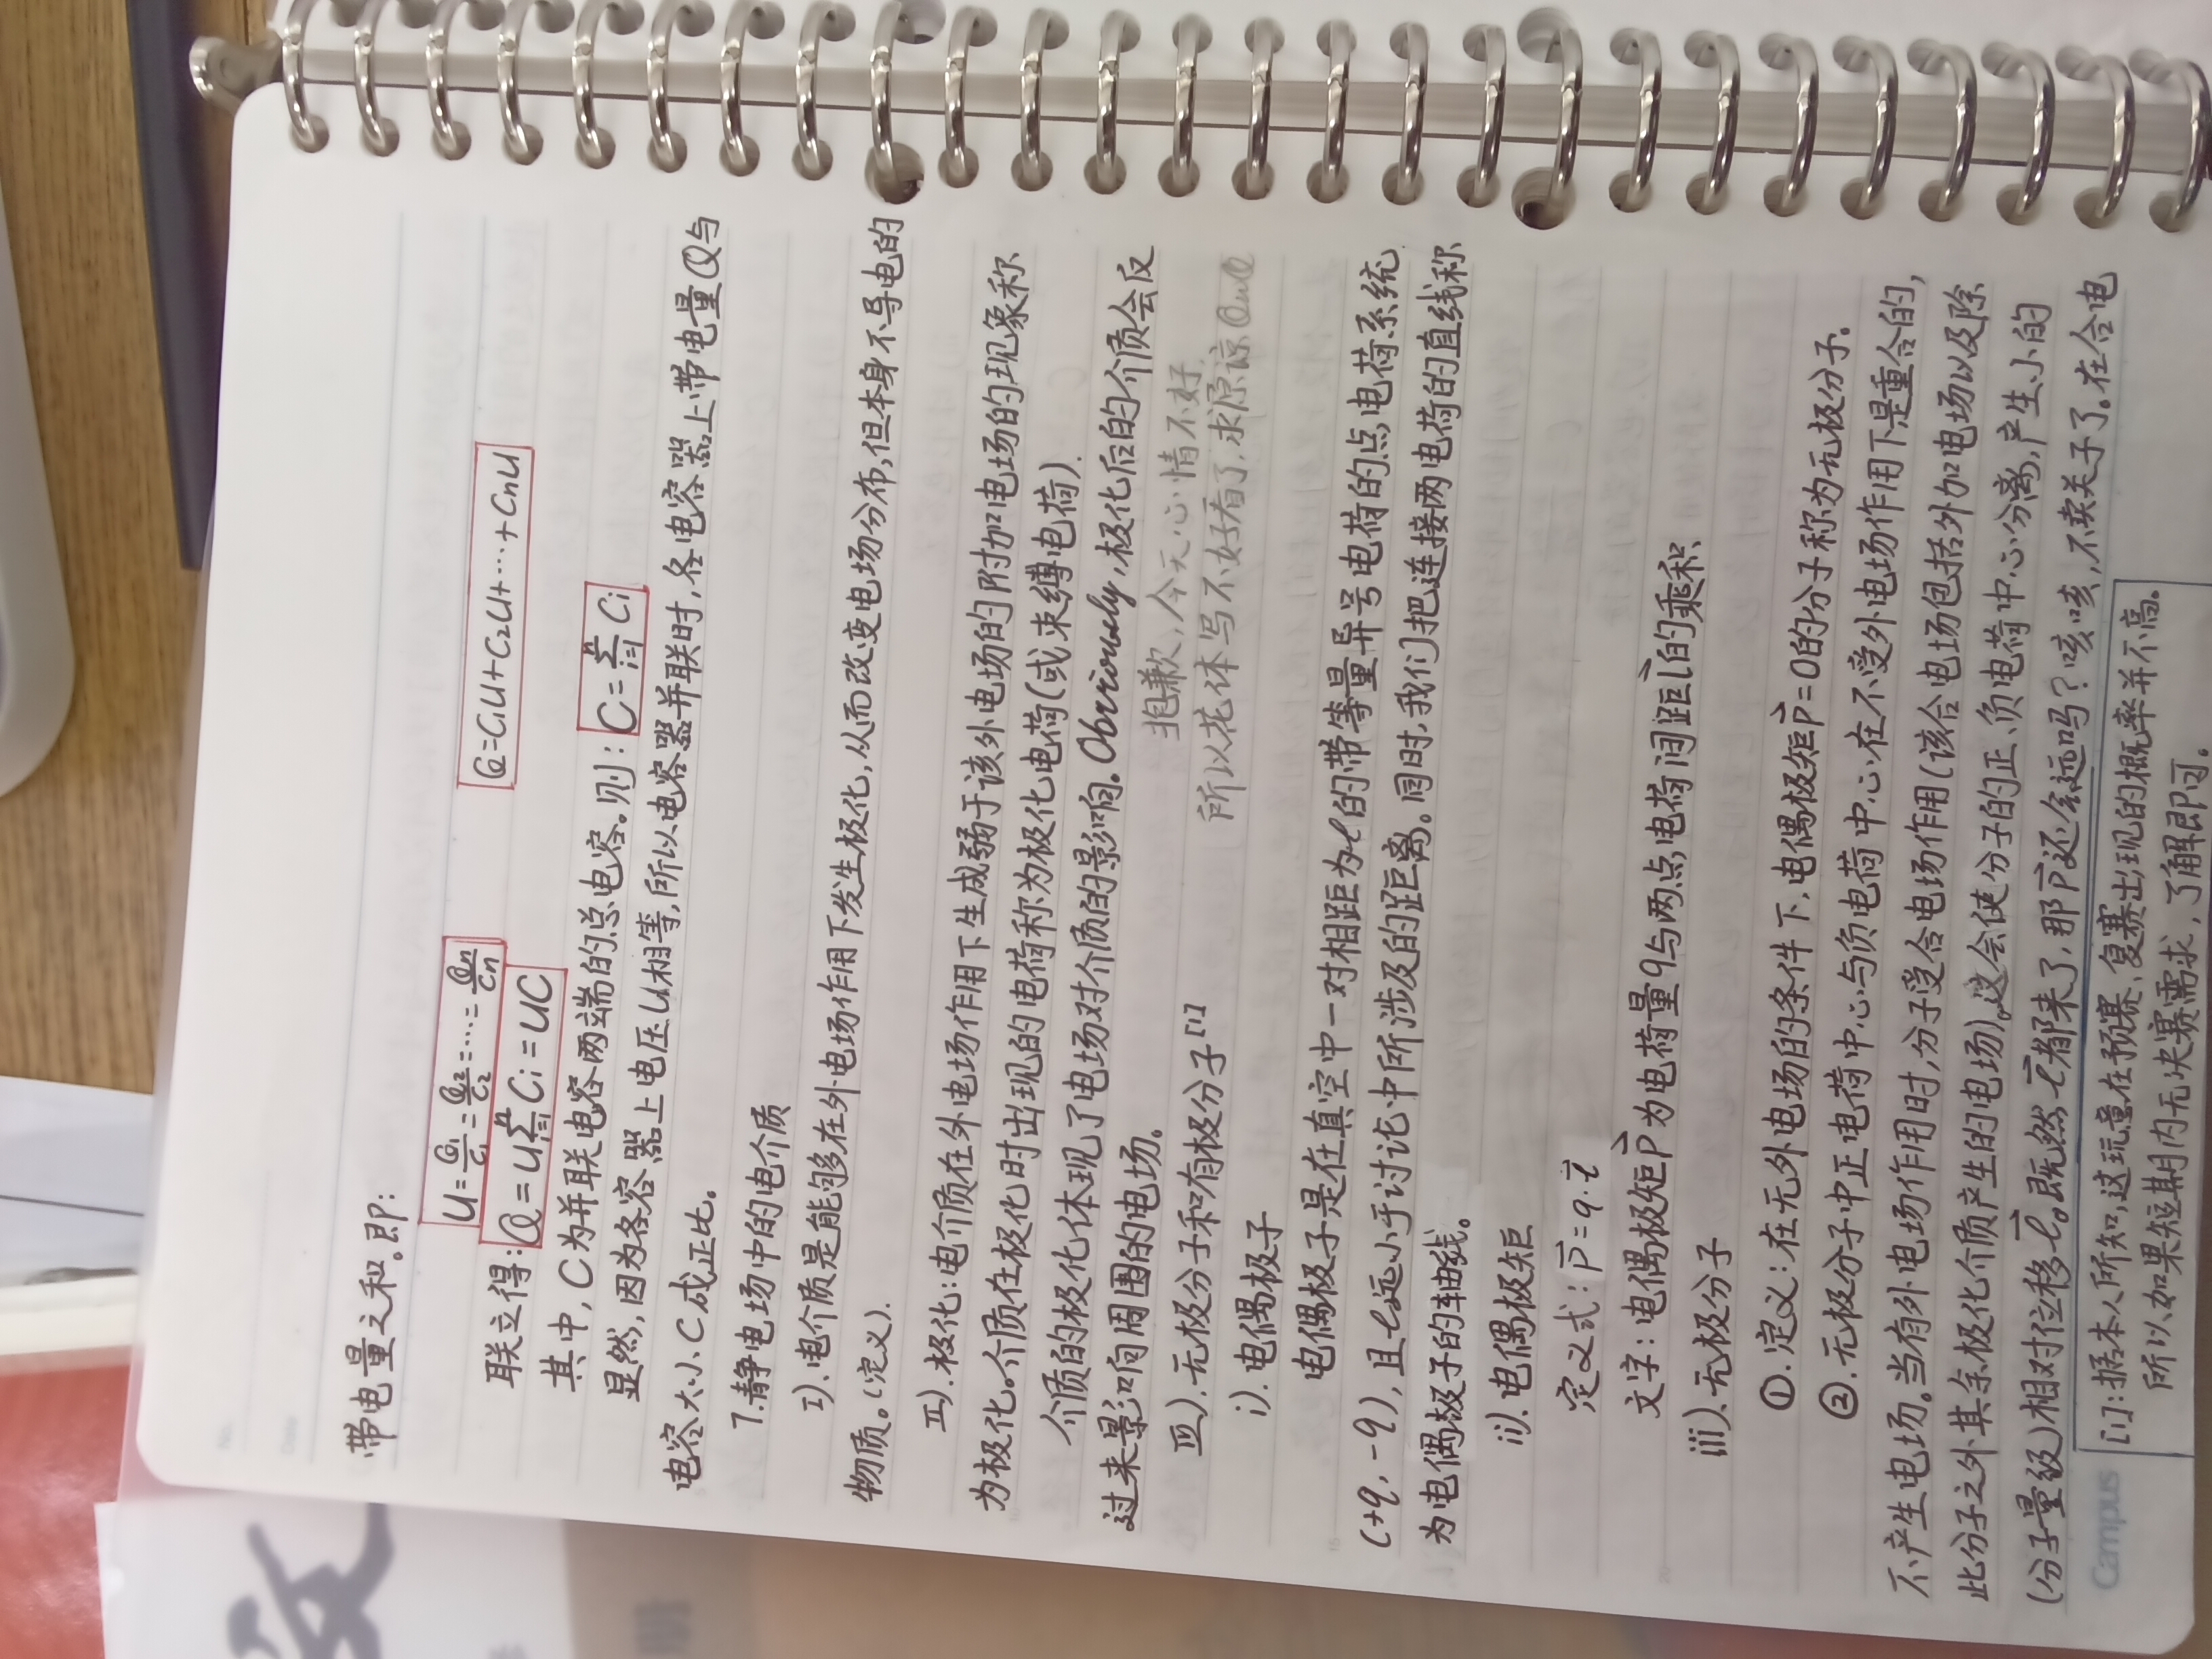 No.
Date
带电量之和。即:
U=Q₁/C₁=Q₂/C₂=…=Qn/Cn Q=C₁U+C₂U+…+CnU
联立得: Q=U∑ⁿᵢ₌₁Cᵢ=UC
其中,C为并联电容两端的总电容。则: C=∑ⁿᵢ₌₁Cᵢ
显然,因为各容器上电压U相等,所以电容器并联时,各电容器上带电量Q与
电容大小C成正比。
7.静电场中的电介质
I).电介质是能够在外电场作用下发生极化,从而改变电场分布,但本身不导电的
物质。(定义).
II).极化:电介质在外电场作用下生成弱于该外电场的附加电场的现象称
为极化。介质在极化时出现的电荷称为极化电荷(或束缚电荷).
介质的极化体现了电场对介质的影响。Obviously,极化后的介质会反
过来影响周围的电场。
抱歉,今天心情不好,
所以花体写不好看了,求原谅QwQ
III).无极分子和有极分子[1]
i).电偶极子
电偶极子是在真空中一对相距为ℓ的带等量异号电荷的点电荷系统
(+q,-q),且ℓ远小于讨论中所涉及的距离。同时,我们把连接两电荷的直线称
为电偶极子的轴线。
ii).电偶极矩
定义式:P⃗=q·ℓ⃗
文字:电偶极矩P⃗为电荷量q与两点电荷间距l⃗的乘积
iii).无极分子
①.定义:在无外电场的条件下,电偶极矩P⃗=0的分子称为无极分子.
②.无极分子中正电荷中心与负电荷中心在不受外电场作用下是重合的,
不产生电场。当有外电场作用时,分子受合电场作用(该合电场包括外加电场以及除
此分子之外其余极化介质产生的电场)。这会使分子的正、负电荷中心分离,产生小的
(分子量级)相对位移ℓ⃗。既然ℓ⃗都来了,那P⃗还会远吗?咳咳,不卖关子了。在合电
[1]:据本人所知,这玩意在预赛、复赛出现的概率并不高。
所以,如果短期内无决赛需求,了解即可。
Campus